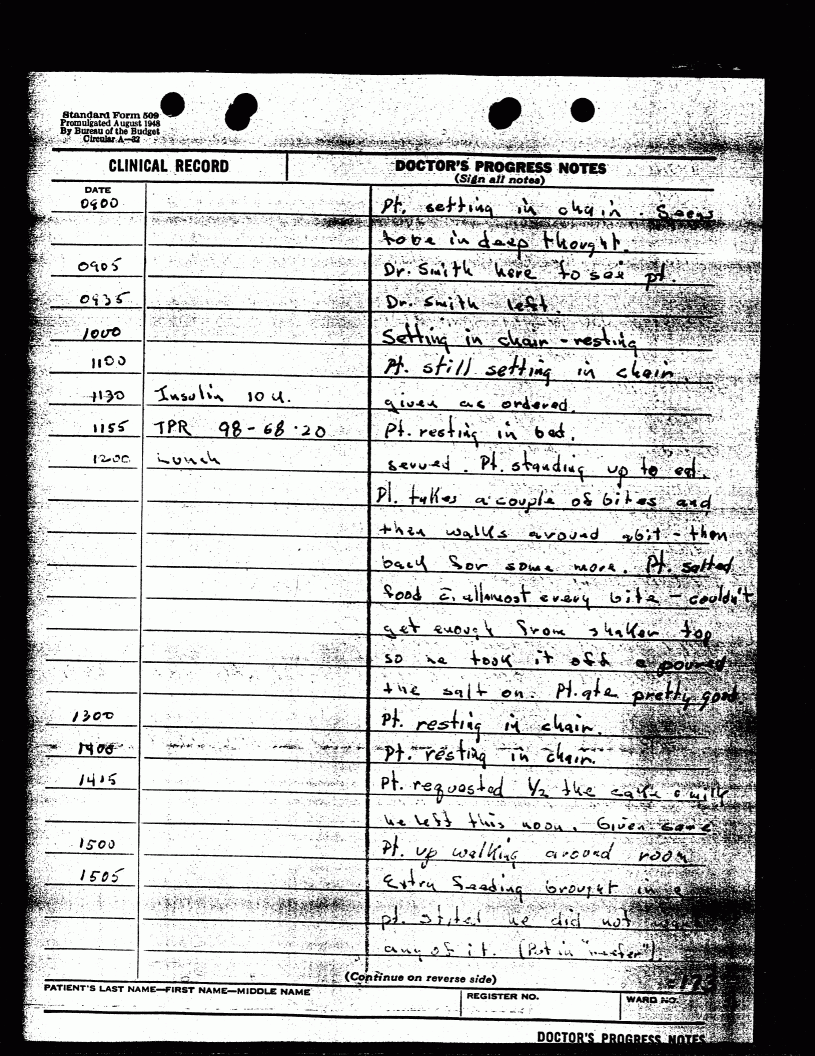 Standard Form 509
Promulgated August 1948
By Bureau of the Budget
Circular A—32
CLINICAL RECORD DOCTOR'S PROGRESS NOTES
(Sign all notes)
DATE
0900 Pt. setting in chain. Seems
to be in deep thought.
0905 Dr. Smith here to see pt.
0935 Dr. Smith left.
1000 Setting in chair - resting
1100 Pt. still setting in chair.
1130 Insulin 10 U. given as ordered.
1155 TPR 98-68-20 Pt. resting in bed.
1200 Lunch served. Pt. standing up to eat.
Pt. takes a couple of bites and
then walks around abit - then
back for some more. Pt. salted
food c̄ allmost every bite - couldn't
get enough from shaker top
so he took it off & poured
the salt on. Pt. ate pretty good
1300 Pt. resting in chair.
1400 Pt. resting in chair.
1415 Pt. requested 1/2 the cake & milk
he left this noon. Given same
1500 Pt. up walking around room
1505 Extra feeding brought in
pt. stated he did not
any of it. (Put in "
(Continue on reverse side)
173
PATIENT'S LAST NAME—FIRST NAME—MIDDLE NAME REGISTER NO. WARD NO.
DOCTOR'S PROGRESS NOTES